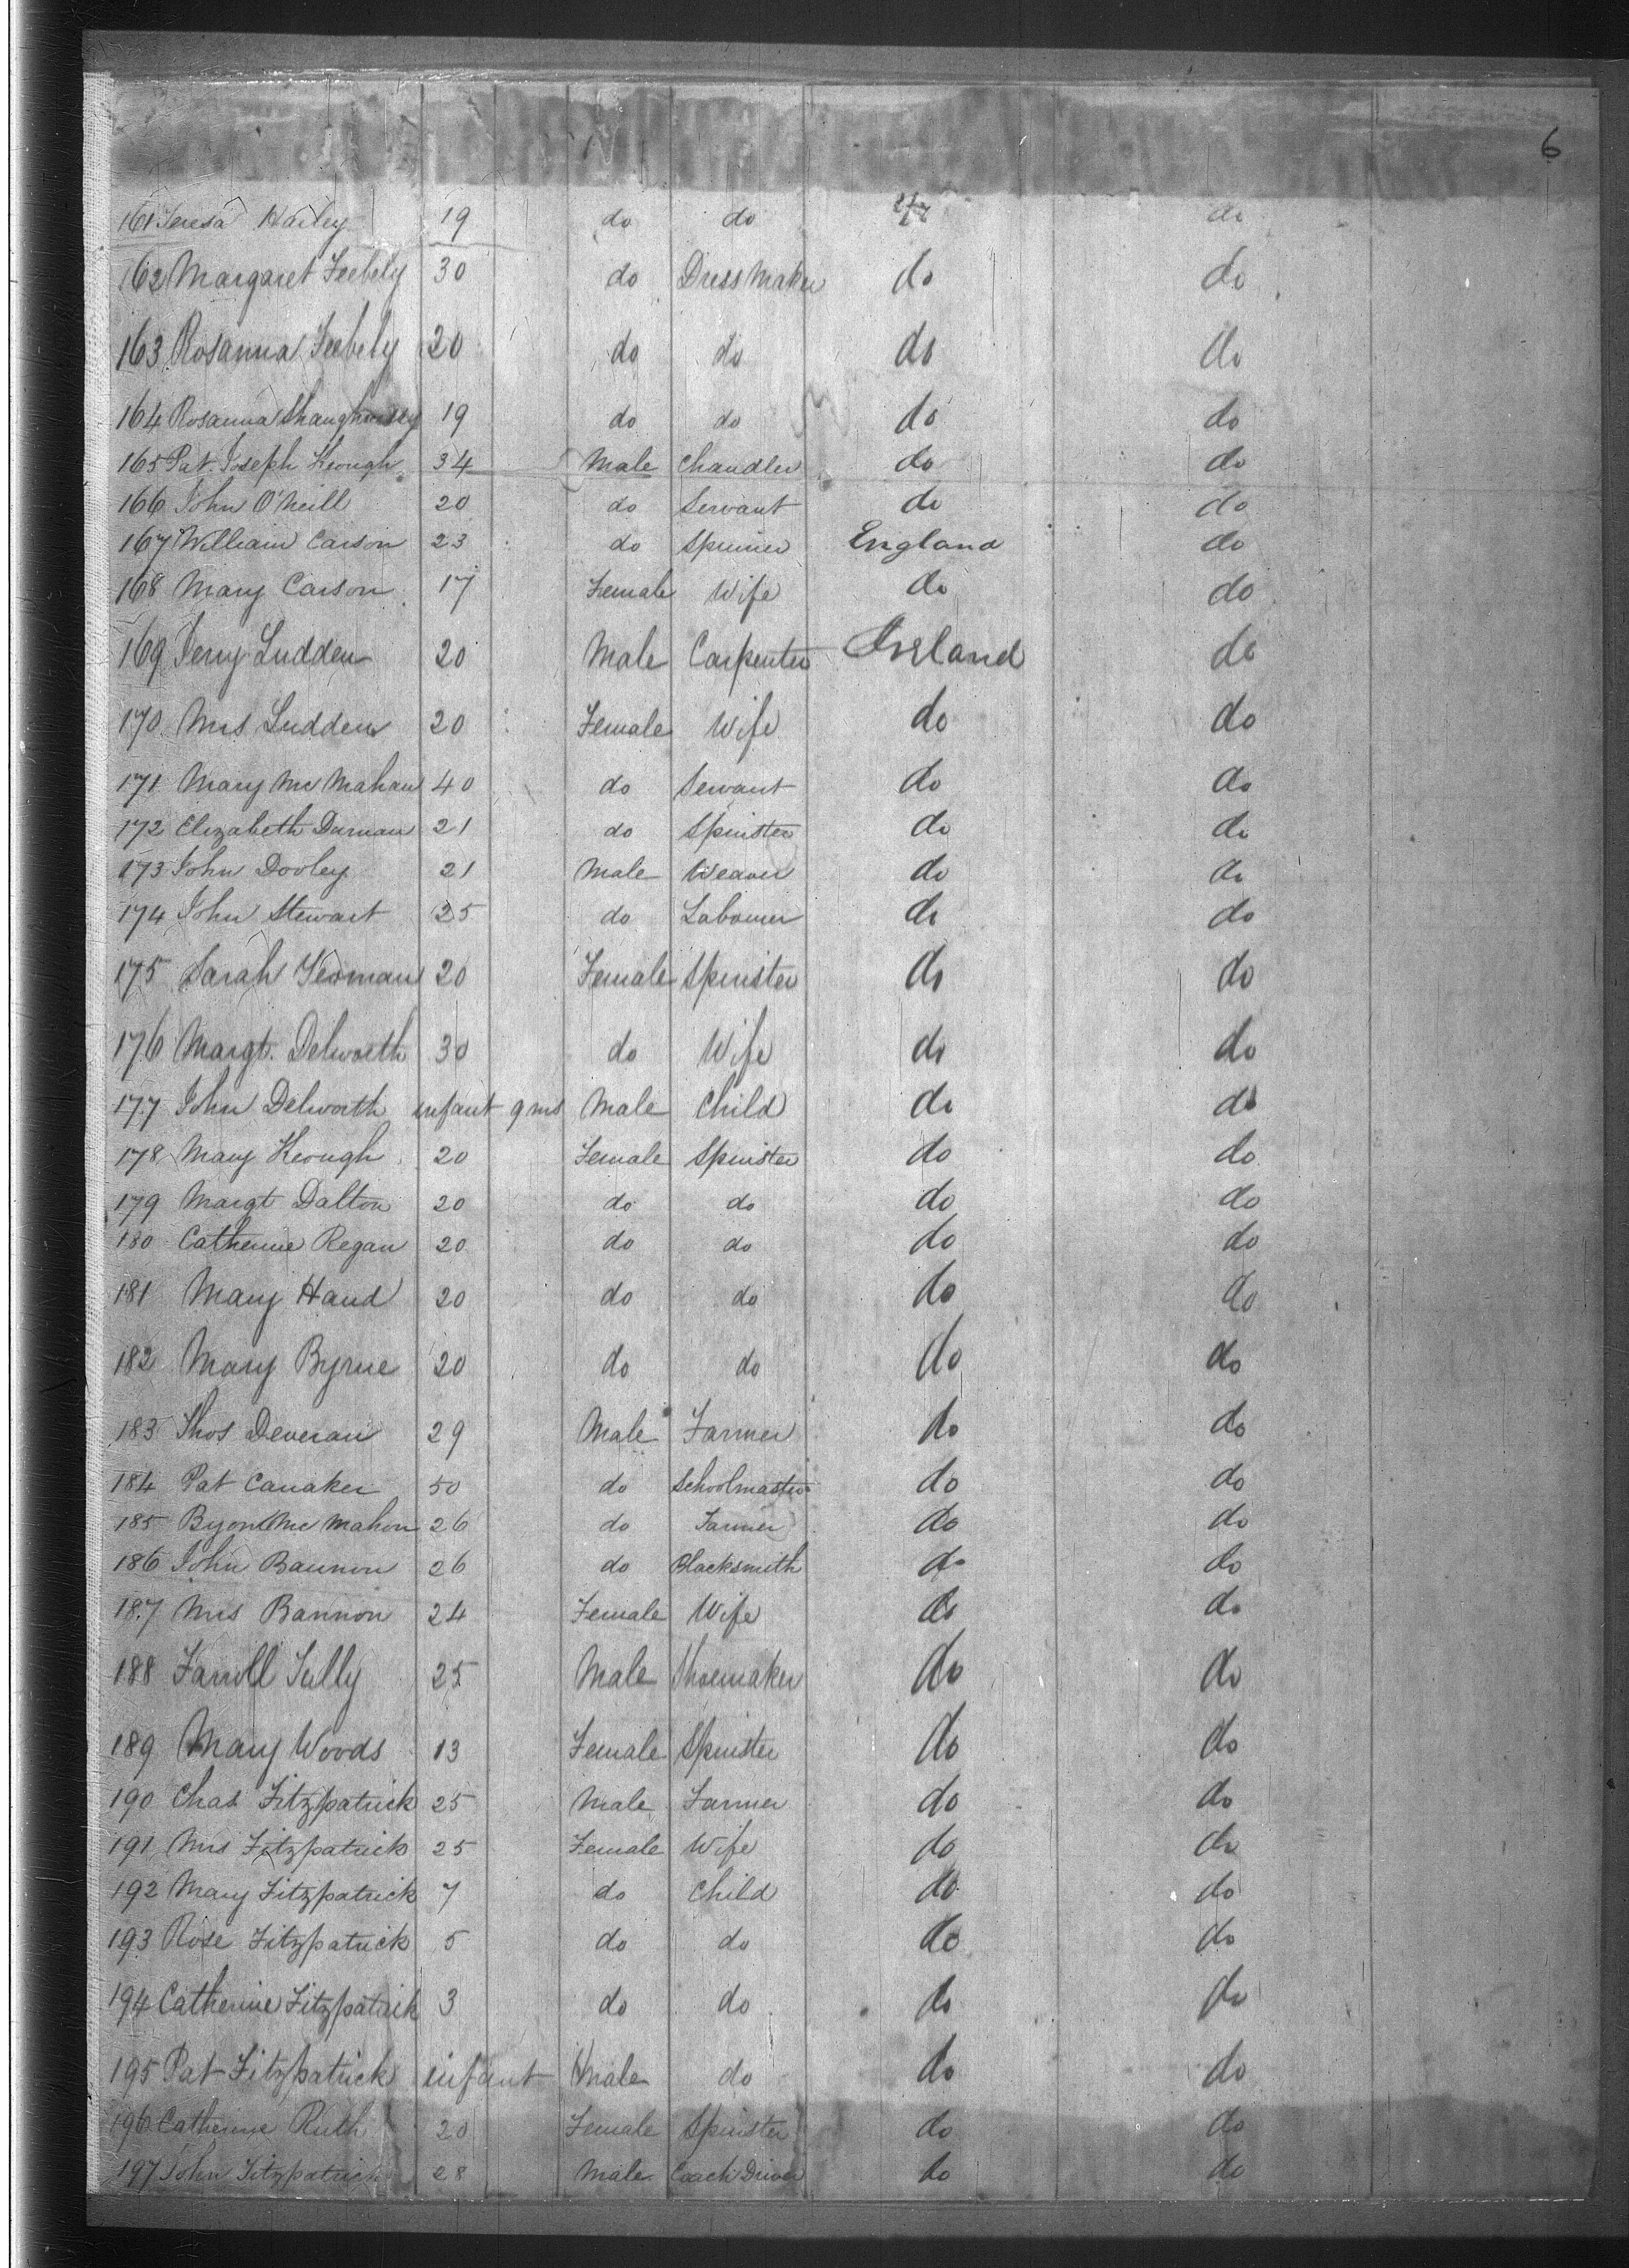 6
161 Teresa Harley 19 do do do
162 Margaret Feebely 30 do Dress Maker do do
163 Rosanna Feebely 20 do do do do
164 Rosanna Shaughnessy 19 do do do do
165 Pat. Joseph Keough 34 Male Chandler do do
166 John O'Neill 20 do Servant do do
167 William Carson 23 do Spinner England do
168 Mary Carson 17 Female Wife do do
169 Jerry Ludden 20 Male Carpenter Ireland do
170 Mrs Ludden 20 Female Wife do do
171 Mary McMahan 40 do Servant do do
172 Elizabeth Durnan 21 do Spinster do do
173 John Dooley 21 Male Weaver do do
174 John Stewart 25 do Labourer do do
175 Sarah Yeoman 20 Female Spinster do do
176 Margt. Delworth 30 do Wife do do
177 John Delworth infant 9 ms Male Child do do
178 Mary Keough 20 Female Spinster do do
179 Margt Dalton 20 do do do do
180 Catherine Regan 20 do do do do
181 Mary Hand 20 do do do do
182 Mary Byrne 20 do do do do
183 Thos Deveran 29 Male Farmer do do
184 Pat Canaker 50 do Schoolmaster do do
185 Byon McMahon 26 do Farmer do do
186 John Bannon 26 do Blacksmith do do
187 Mrs Bannon 24 Female Wife do do
188 Farrell Tully 25 Male Shoemaker do do
189 Mary Woods 13 Female Spinster do do
190 Chas Fitzpatrick 25 Male Farmer do do
191 Mrs Fitzpatrick 25 Female Wife do do
192 Mary Fitzpatrick 7 do Child do do
193 Rose Fitzpatrick 5 do do do do
194 Catherine Fitzpatrick 3 do do do do
195 Pat Fitzpatrick infant Male do do do
196 Catherine Ruth 20 Female Spinster do do
197 John Fitzpatrick 28 Male Coach Driver do do